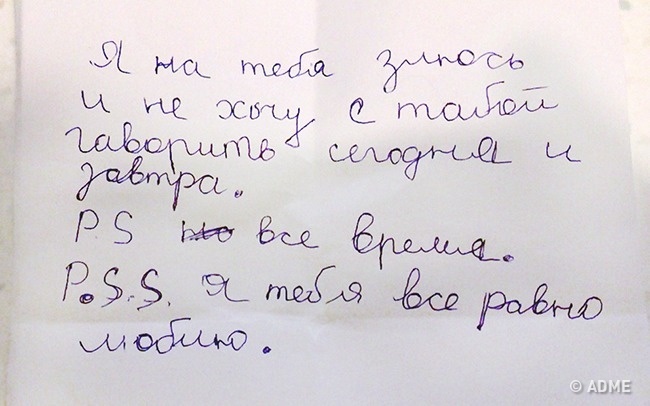 Я на тебя злюсь
и не хочу с табой
гаворить сегодня и
завтра.
P S все время.
P.S.S. Я тебя все равно
люблю.
© ADME